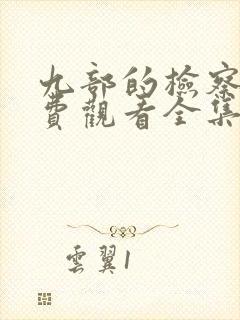 九部的檢察
費觀看全集
雲翼1